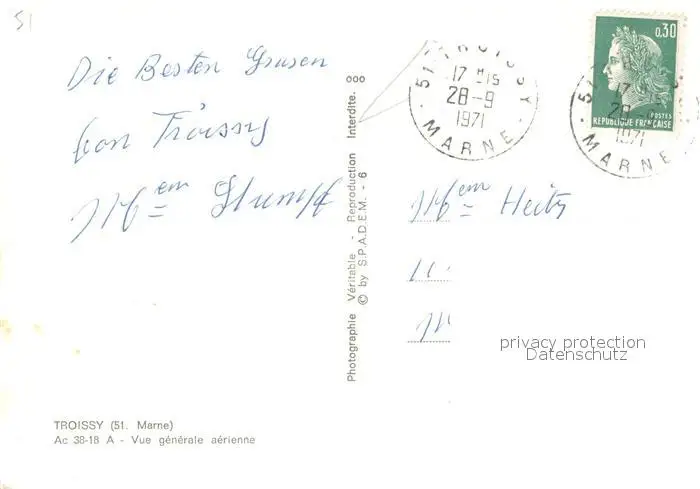 51
Die Besten Grusen
von Troissy
Mem Stumpf
TROISSY (51. Marne)
Ac 38-18 A - Vue générale aérienne
Photographie Véritable - Reproduction Interdite. 000
© by S.P.A.D.E.M. - 6
51 TROISSY
17 H 15
28-9
1971
MARNE
0,30
POSTES
REPUBLIQUE FRANÇAISE
51
17
28-9
1971
MARNE
Mem Heitz
privacy protection
Datenschutz